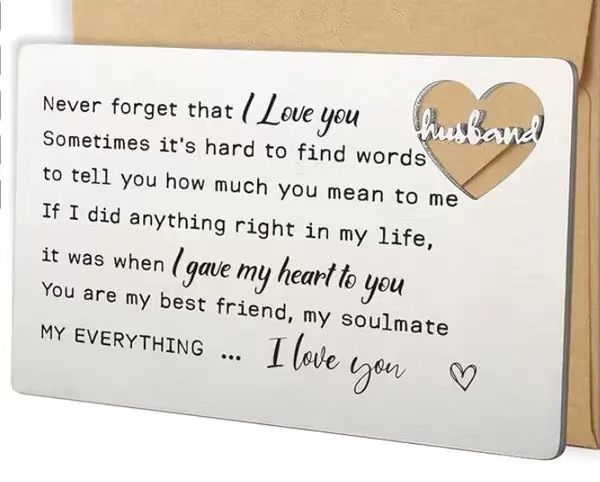 Never forget that I Love you
husband
Sometimes it's hard to find words
to tell you how much you mean to me
If I did anything right in my life,
it was when I gave my heart to you
You are my best friend, my soulmate
MY EVERYTHING ... I love you